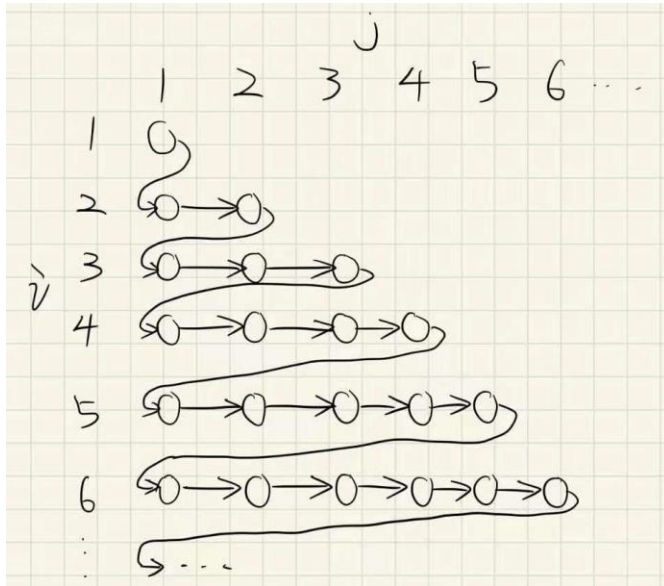 j
1 2 3 4 5 6 ...
1
2
3
i
4
5
6
⋮
...